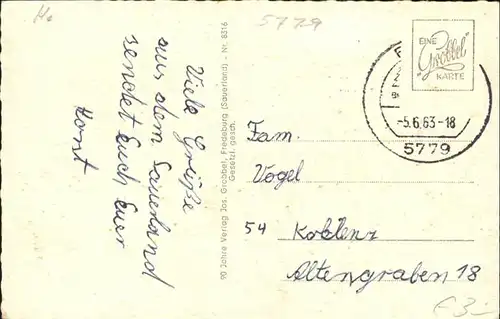 5779
Viele Grüße
aus dem Sauerland
sendet Euch Euer
Horst
90 Jahre Verlag Jos. Grobbel, Fredeburg (Sauerland) – Nr. 8316
Gesetzl. gesch.
EINE
„Grobbel“
KARTE
-5.6.63-18
5779
Fam.
Vogel
54 Koblenz
Altengraben 18